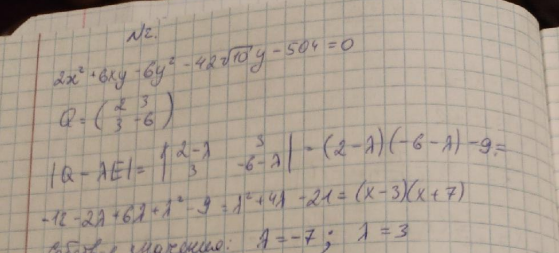 N2.
2x² + 6xy - 6y² - 42√10 y - 504 = 0
Q = ( 2 3
3 -6 )
|Q - λE| = | 2-λ 3
3 -6-λ | = (2-λ)(-6-λ) - 9 =
-12 - 2λ + 6λ + λ² - 9 = λ² + 4λ - 21 = (x-3)(x+7)
значения: λ = -7; λ = 3